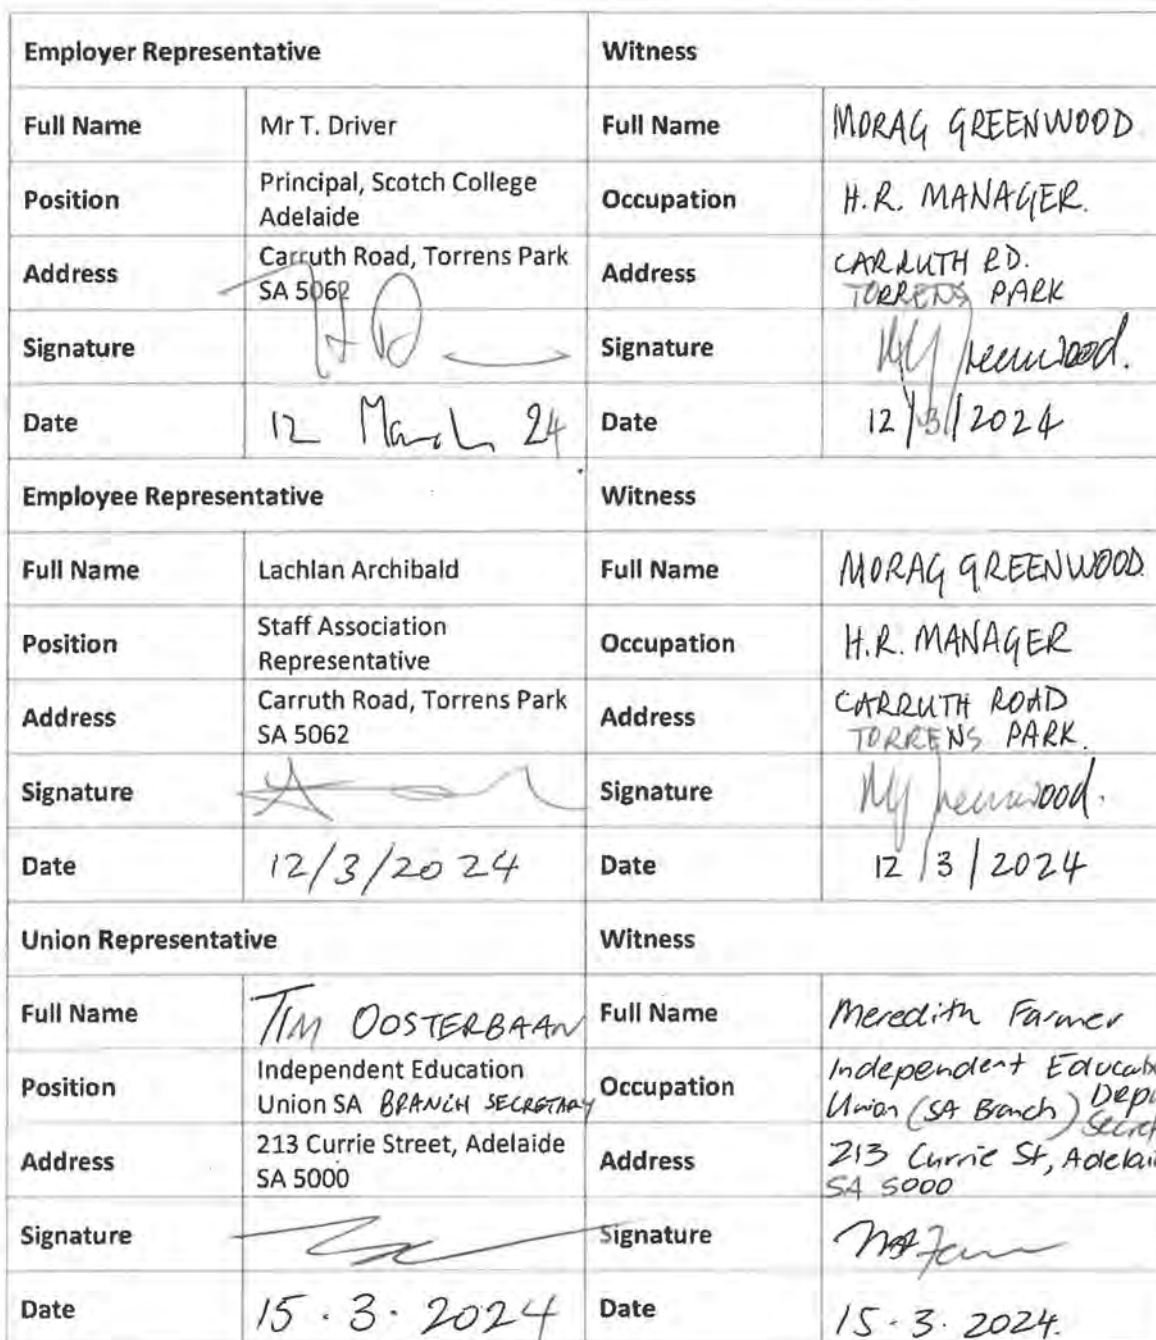 Employer Representative Witness
Full Name Mr T. Driver Full Name MORAG GREENWOOD
Position Principal, Scotch College
Adelaide Occupation H.R. MANAGER.
Address Carruth Road, Torrens Park
SA 5062 Address CARRUTH RD.
TORRENS PARK
Signature Signature MGreenwood.
Date 12 March 24 Date 12/3/2024
Employee Representative Witness
Full Name Lachlan Archibald Full Name MORAG GREENWOOD
Position Staff Association
Representative Occupation H.R. MANAGER
Address Carruth Road, Torrens Park
SA 5062 Address CARRUTH ROAD
TORRENS PARK.
Signature Signature MGreenwood.
Date 12/3/2024 Date 12/3/2024
Union Representative Witness
Full Name TIM OOSTERBAAN Full Name Meredith Farmer
Position Independent Education
Union SA BRANCH SECRETARY Occupation Independent
Union (SA Branch)
Address 213 Currie Street, Adelaide
SA 5000 Address 213 Currie St,
SA 5000
Signature Signature
Date 15.3.2024 Date 15.3.2024.